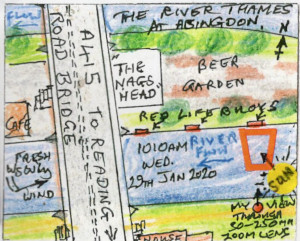 THE RIVER THAMES
AT ABINGDON.
N
A415 TO READING
ROAD BRIDGE
THE
NAGS
HEAD
BEER
GARDEN
CAFE
RED LIFE BUOYS
1010AM
WED.
29TH JAN 2020
RIVER
FLOW
FRESH
WSW'LY
WIND
SUN
MY VIEW
THROUGH
80-250MM
ZOOM LENS